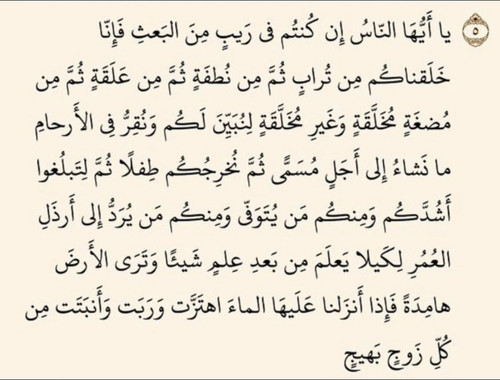 ٥ يا أَيُّهَا النّاسُ إِن كُنتُم فى رَيبٍ مِنَ البَعثِ فَإِنّا
خَلَقناكُم مِن تُرابٍ ثُمَّ مِن نُطفَةٍ ثُمَّ مِن عَلَقَةٍ ثُمَّ مِن
مُضغَةٍ مُخَلَّقَةٍ وَغَيرِ مُخَلَّقَةٍ لِنُبَيِّنَ لَكُم وَنُقِرُّ فِى الأَرحامِ
ما نَشاءُ إِلى أَجَلٍ مُسَمًّى ثُمَّ نُخرِجُكُم طِفلًا ثُمَّ لِتَبلُغوا
أَشُدَّكُم وَمِنكُم مَن يُتَوَفّى وَمِنكُم مَن يُرَدُّ إِلى أَرذَلِ
العُمُرِ لِكَيلا يَعلَمَ مِن بَعدِ عِلمٍ شَيئًا وَتَرَى الأَرضَ
هامِدَةً فَإِذا أَنزَلنا عَلَيهَا الماءَ اهتَزَّت وَرَبَت وَأَنبَتَت مِن
كُلِّ زَوجٍ بَهيجٍ